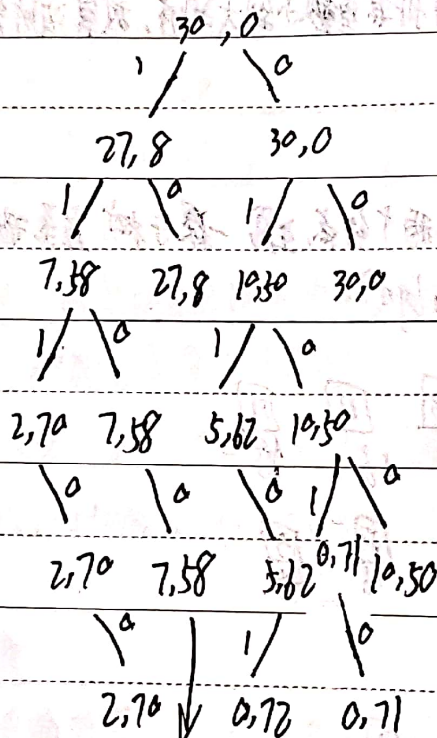 30, 0
1 0
27, 8 30, 0
1 0 1 0
7, 58 27, 8 10, 50 30, 0
1 0 1 0
2, 70 7, 58 5, 62 10, 50
0 0 0 1 0
2, 70 7, 58 5, 62 0, 71 10, 50
0 1 0
2, 70 0, 72 0, 71